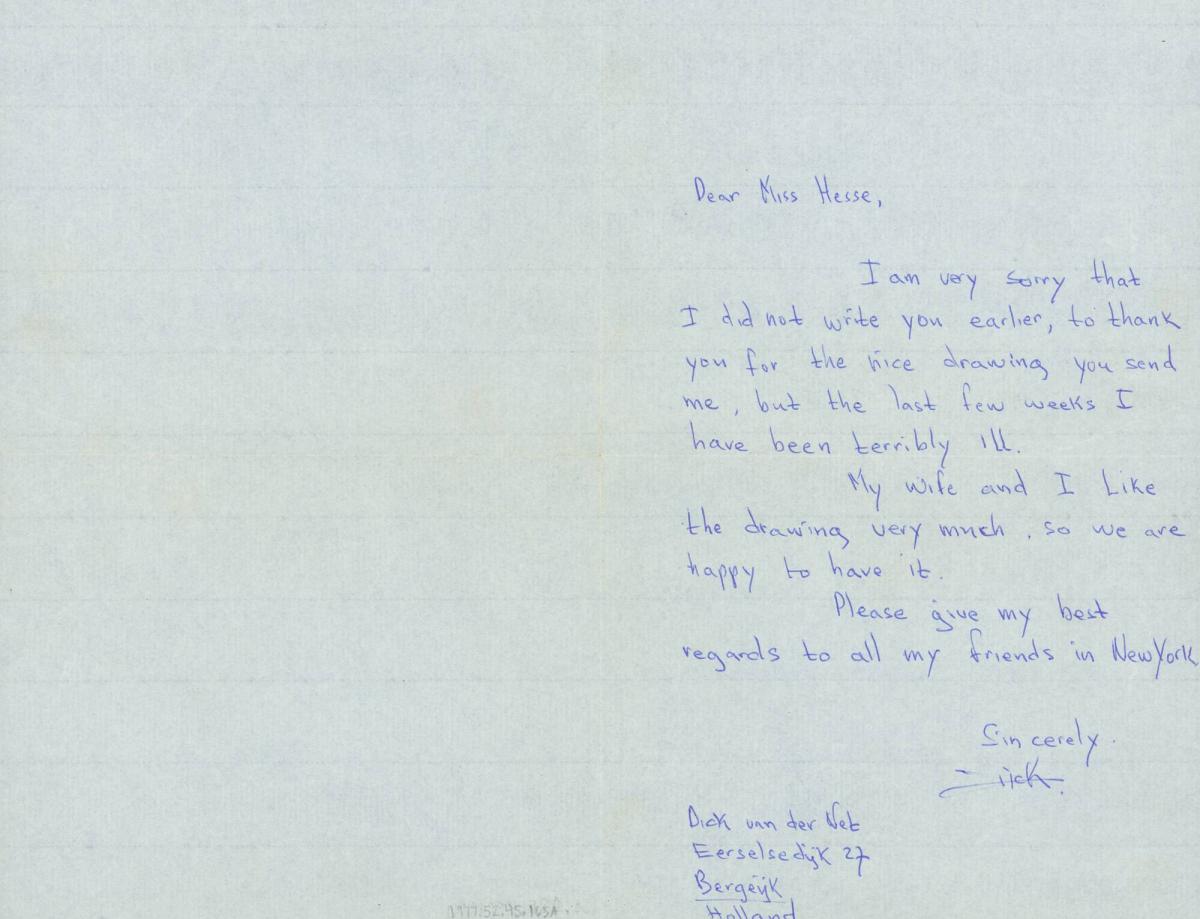 Dear Miss Hesse,
I am very sorry that
I did not write you earlier, to thank
you for the nice drawing you send
me, but the last few weeks I
have been terribly ill.
My wife and I Like
the drawing very much, so we are
happy to have it.
Please give my best
regards to all my friends in New York
Sincerely.
Dick.
Dick van der Net
Eerselsedijk 27
Bergeijk
Holland
1977.52.45.165A